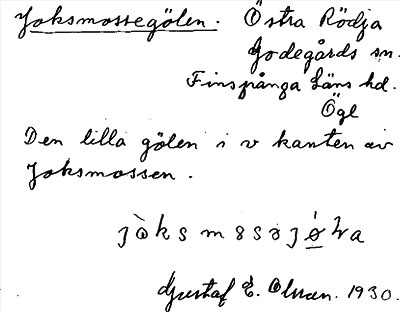 Joksmossegölen. Östra Rödja
Godegårds sn.
Finspånga Läns hd.
Ögl
Den lilla gölen i v kanten av
Joksmossen.
jòksmosəjø̀la
Gustaf E. Olsson. 1930.